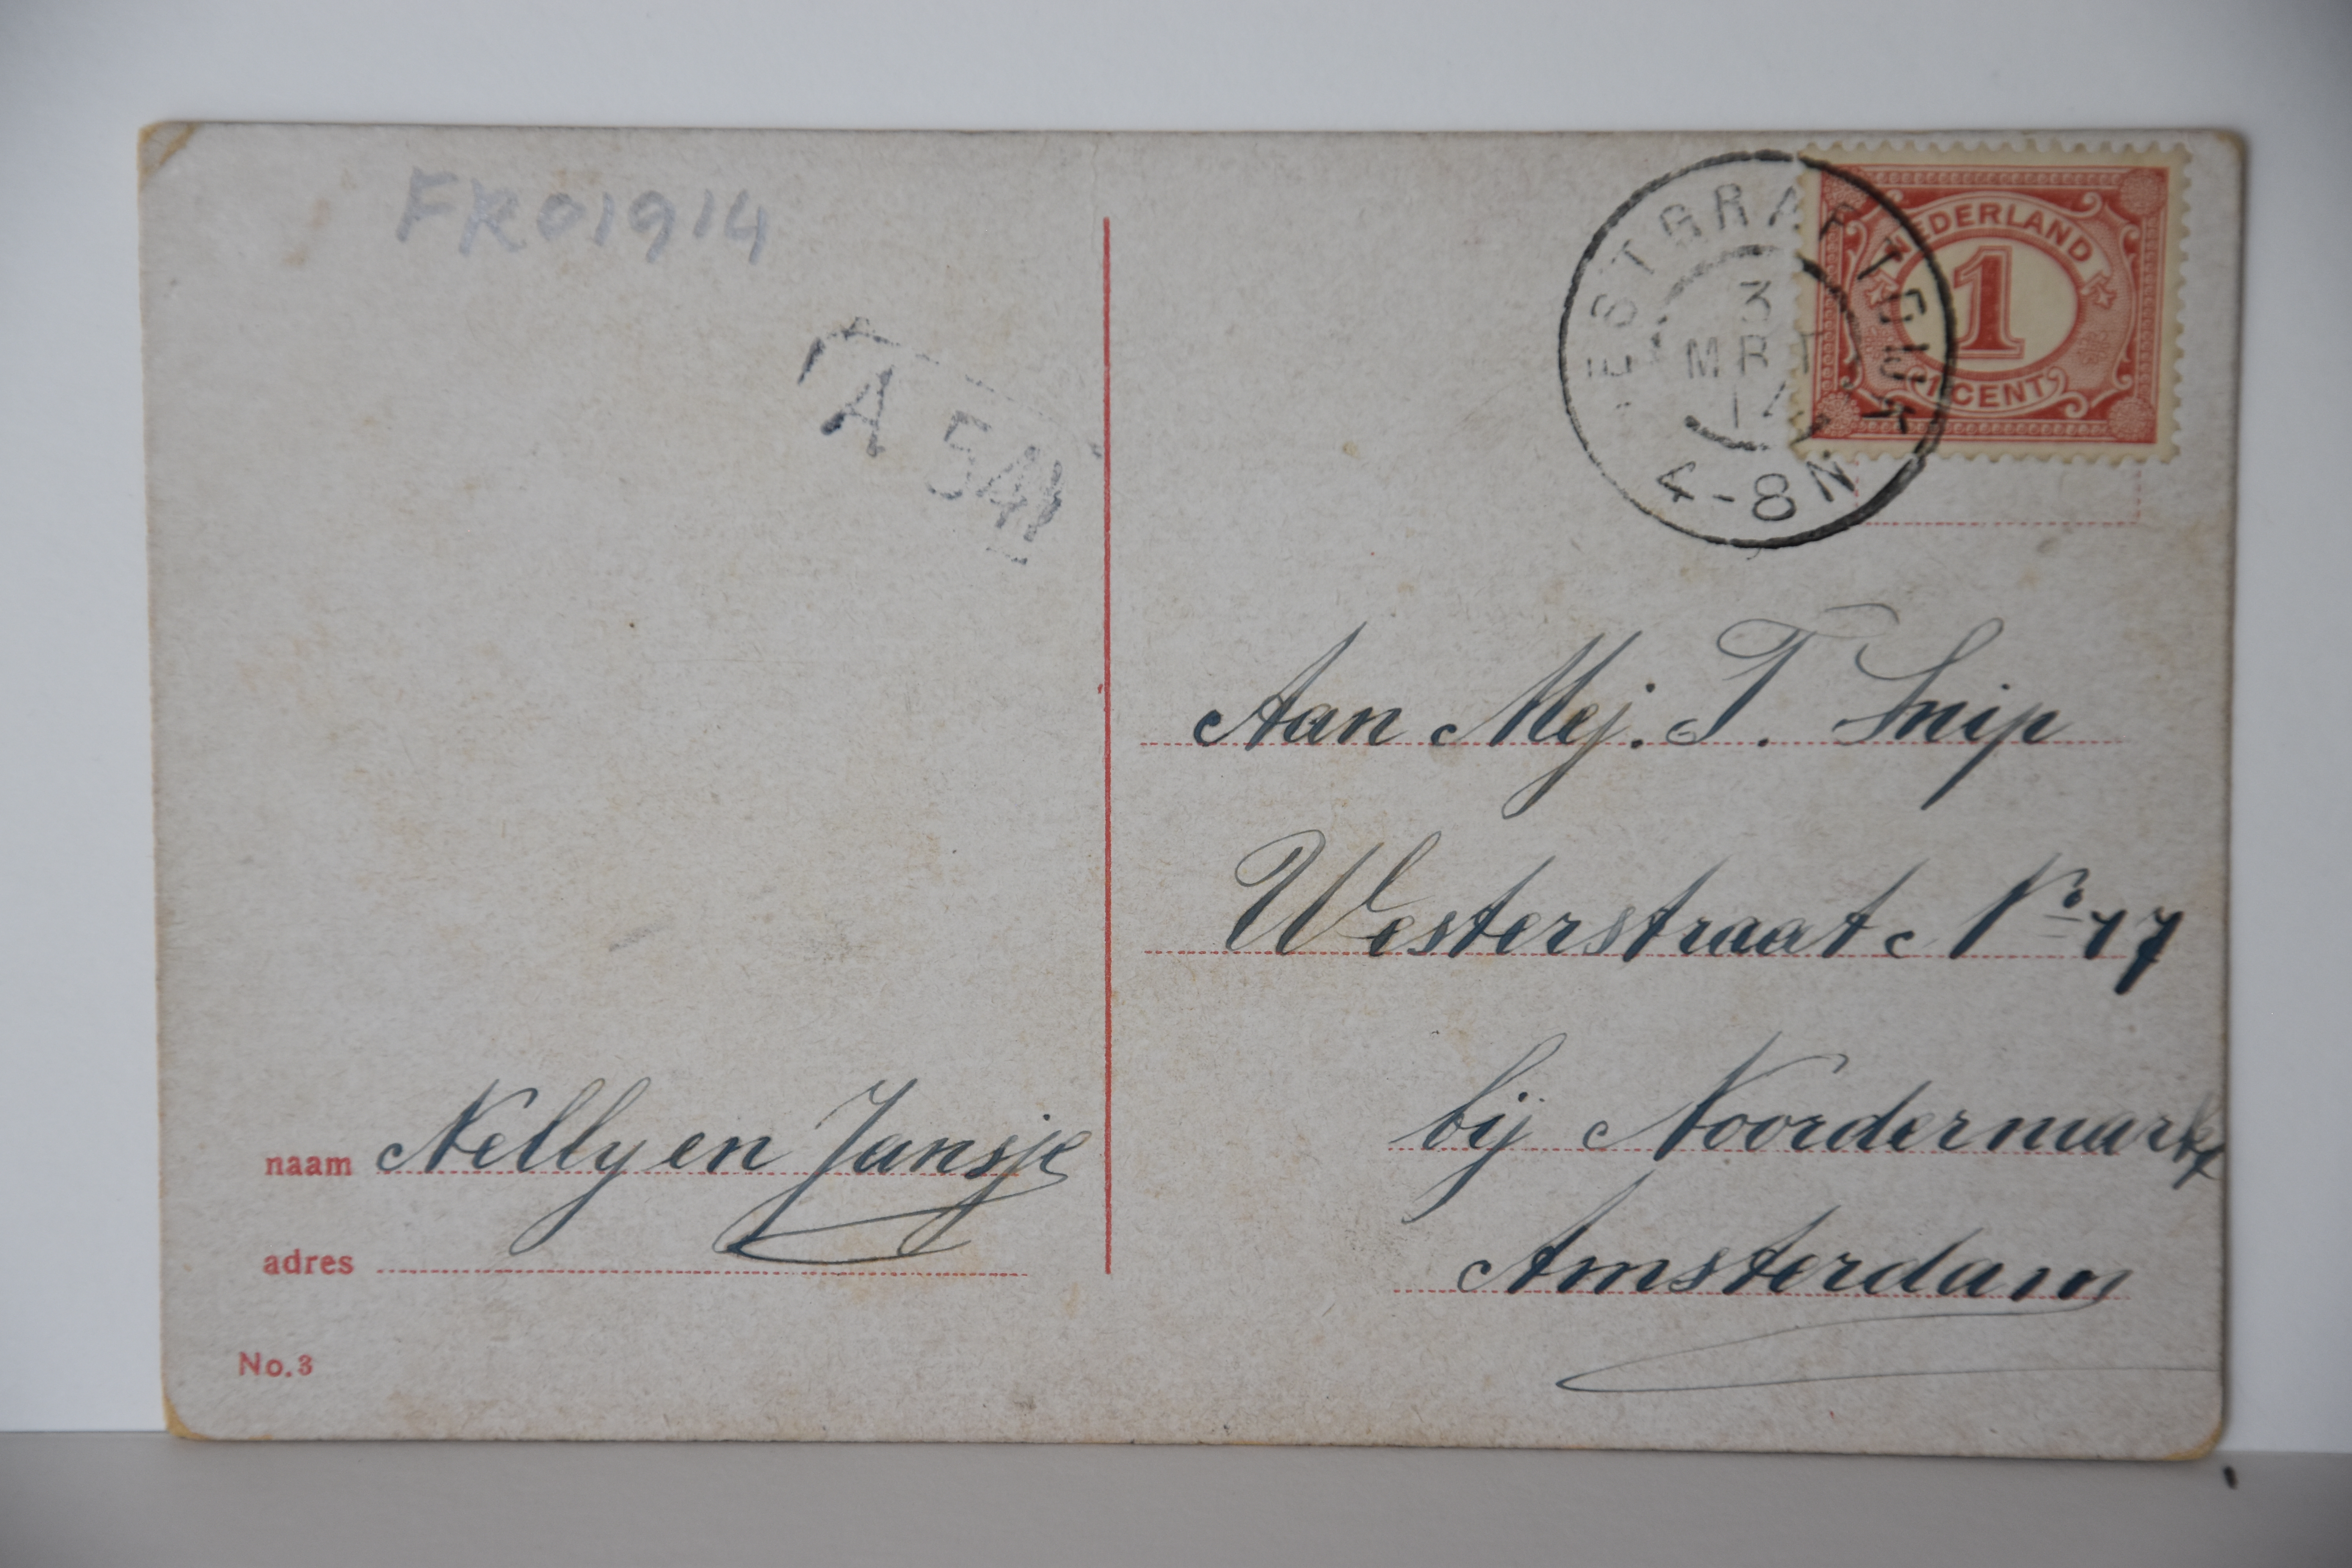 FR01914
A 541
NEDERLAND
1
1 CENT
ESTGRAFTDIJK
3
MRT
4-8N
Aan Mej. T. Snip
Westerstraat No 77
bij Noordermarkt
Amsterdam
naam Nelly en Jansje
adres
No.3